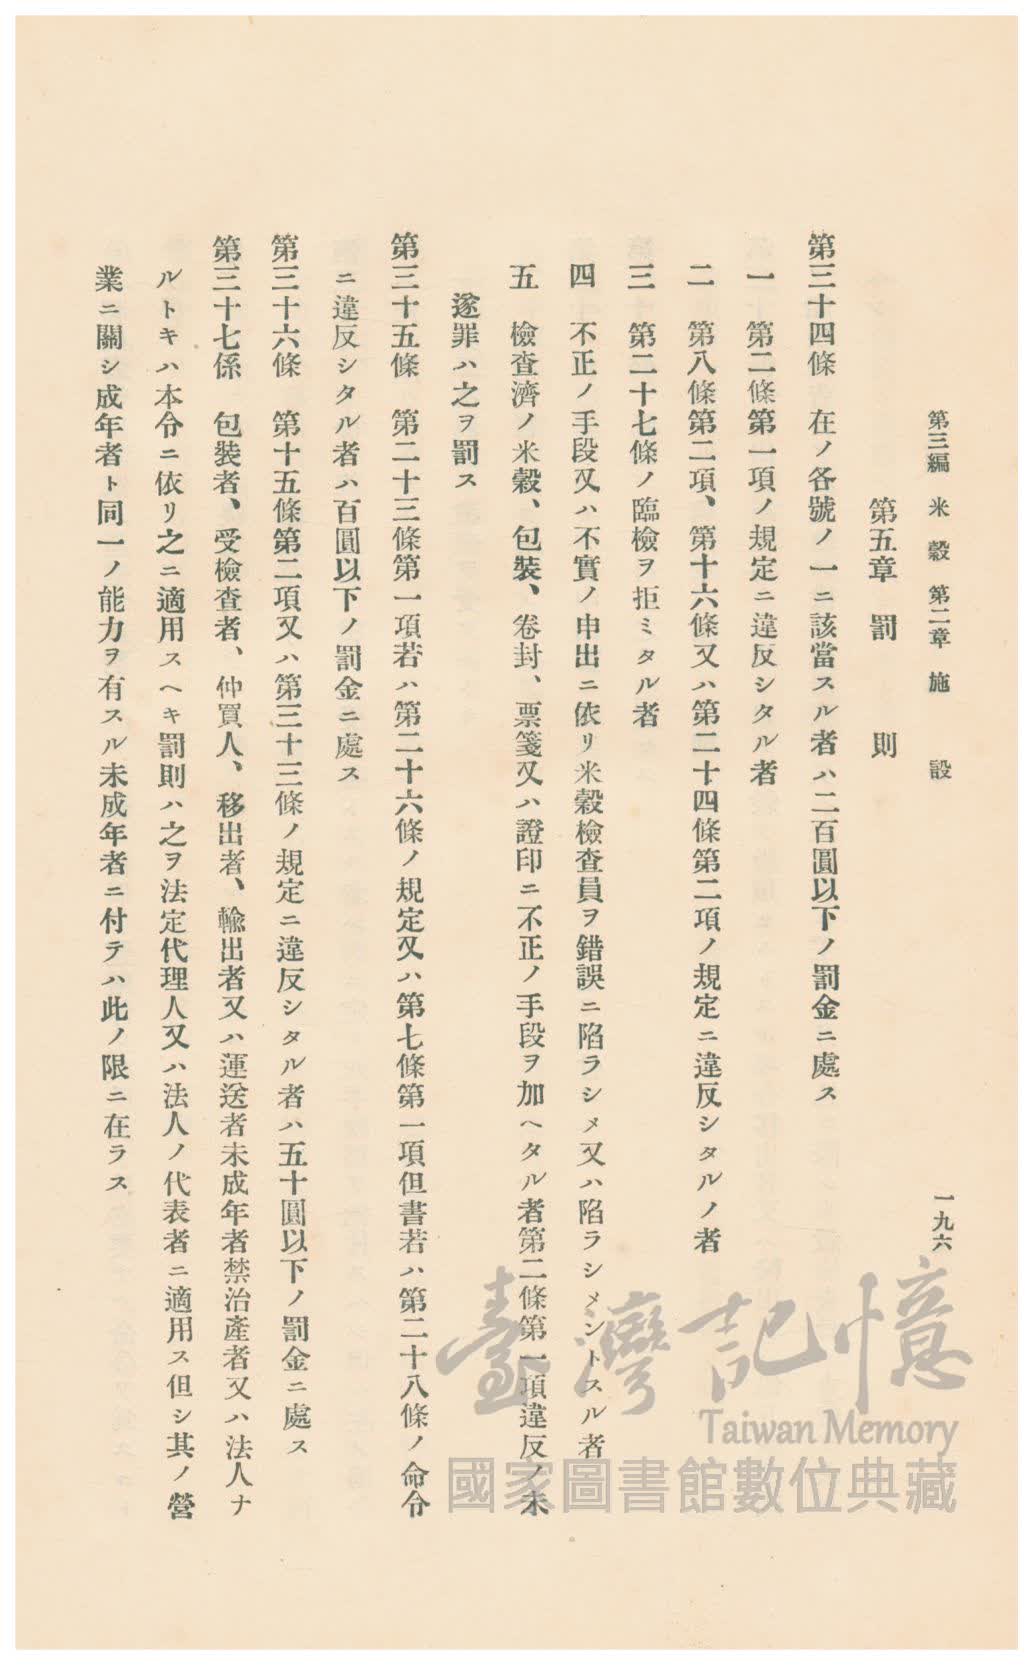 第三編 米穀 第二章 施設 一九六
第五章 罰則
第三十四條 在ノ各號ノ一ニ該當スル者ハ二百圓以下ノ罰金ニ處ス
一 第二條第一項ノ規定ニ違反シタル者
二 第八條第二項、第十六條又ハ第二十四條第二項ノ規定ニ違反シタルノ者
三 第二十七條ノ臨檢ヲ拒ミタル者
四 不正ノ手段又ハ不實ノ申出ニ依リ米穀檢查員ヲ錯誤ニ陷ラシメ又ハ陷ラシメントスル者
五 檢查濟ノ米穀、包裝、卷封、票箋又ハ證印ニ不正ノ手段ヲ加ヘタル者第二條第一項違反ノ未
遂罪ハ之ヲ罰ス
第三十五條 第二十三條第一項若ハ第二十六條ノ規定又ハ第七條第一項但書若ハ第二十八條ノ命令
ニ違反シタル者ハ百圓以下ノ罰金ニ處ス
第三十六條 第十五條第二項又ハ第三十三條ノ規定ニ違反シタル者ハ五十圓以下ノ罰金ニ處ス
第三十七係 包裝者、受檢查者、仲買人、移出者、輸出者又ハ運送者未成年者禁治產者又ハ法人ナ
ルトキハ本令ニ依リ之ニ適用スヘキ罰則ハ之ヲ法定代理人又ハ法人ノ代表者ニ適用ス但シ其ノ營
業ニ關シ成年者ト同一ノ能力ヲ有スル未成年者ニ付テハ此ノ限ニ在ラス
臺灣記憶
Taiwan Memory
國家圖書館數位典藏